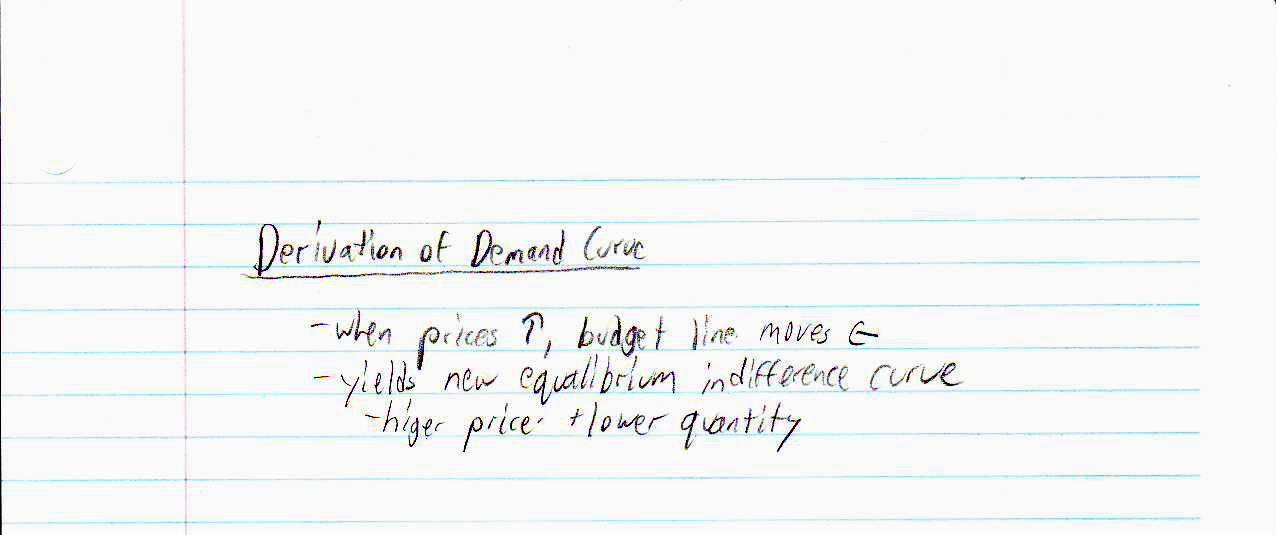 Derivation of Demand Curve
- when prices ↑, budget line moves ←
- yields new equalibrium indifference curve
- higer price + lower quantity